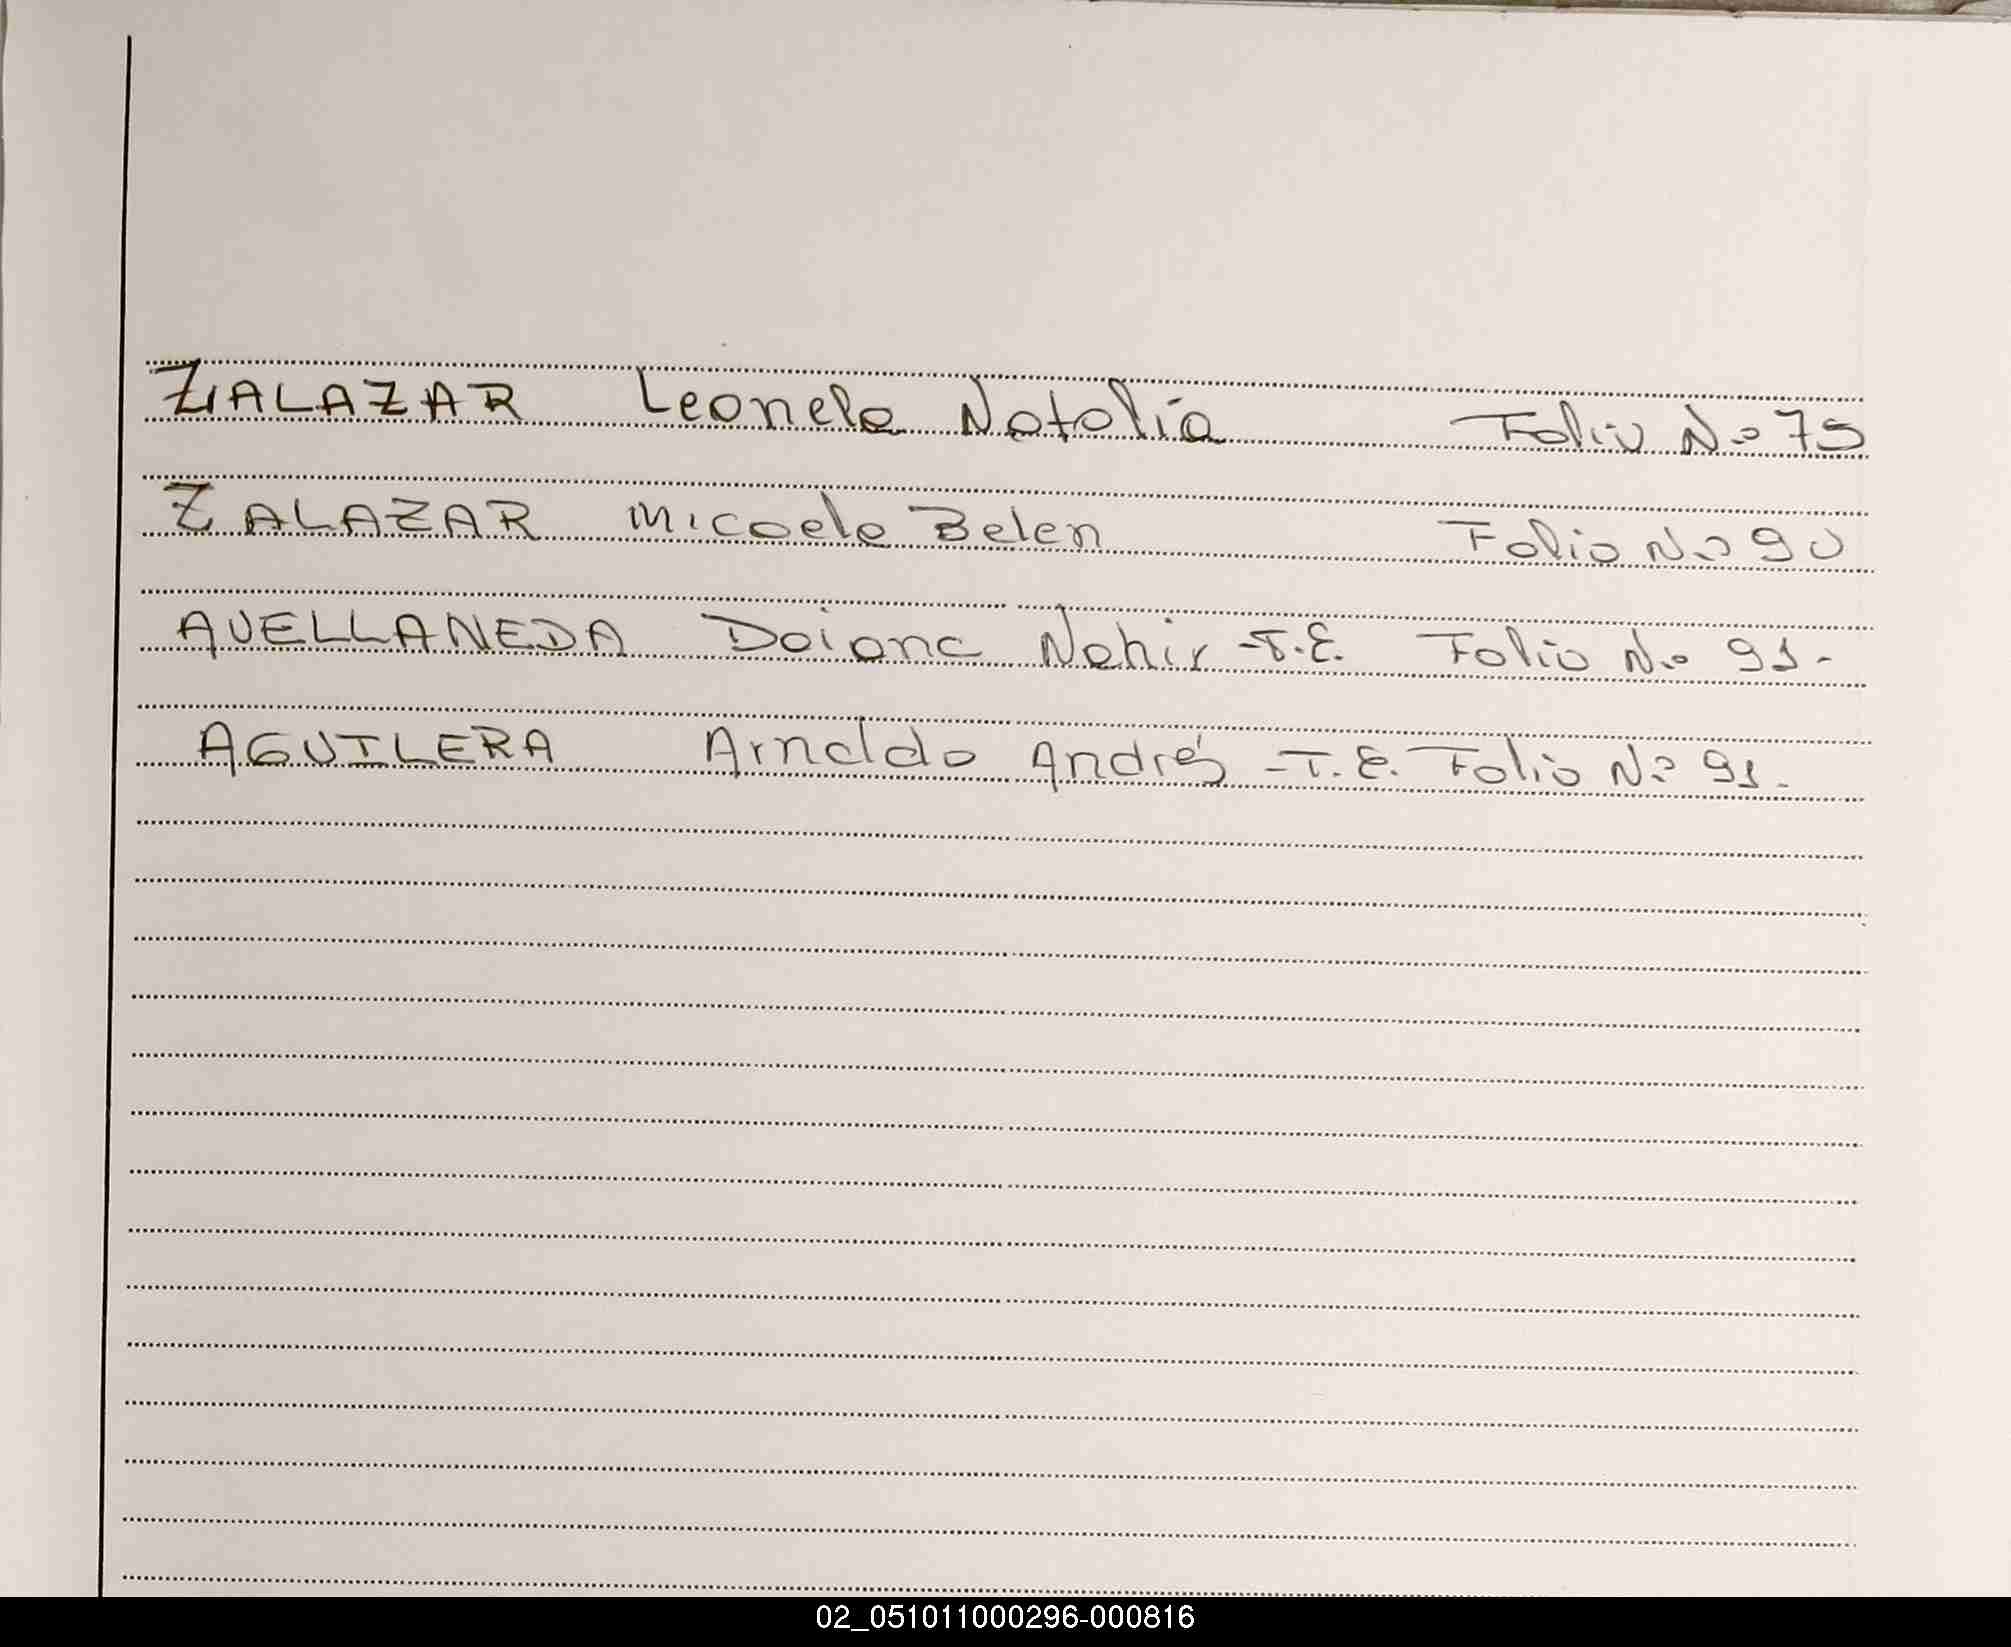 ZALAZAR Leonela Natalia Folio No 75
ZALAZAR Micaela Belen Folio No 90
AVELLANEDA Daiana Nahir -T.E. Folio No 91-
AGUILERA Arnaldo Andrés -T.E. Folio No 91-
02_051011000296-000816